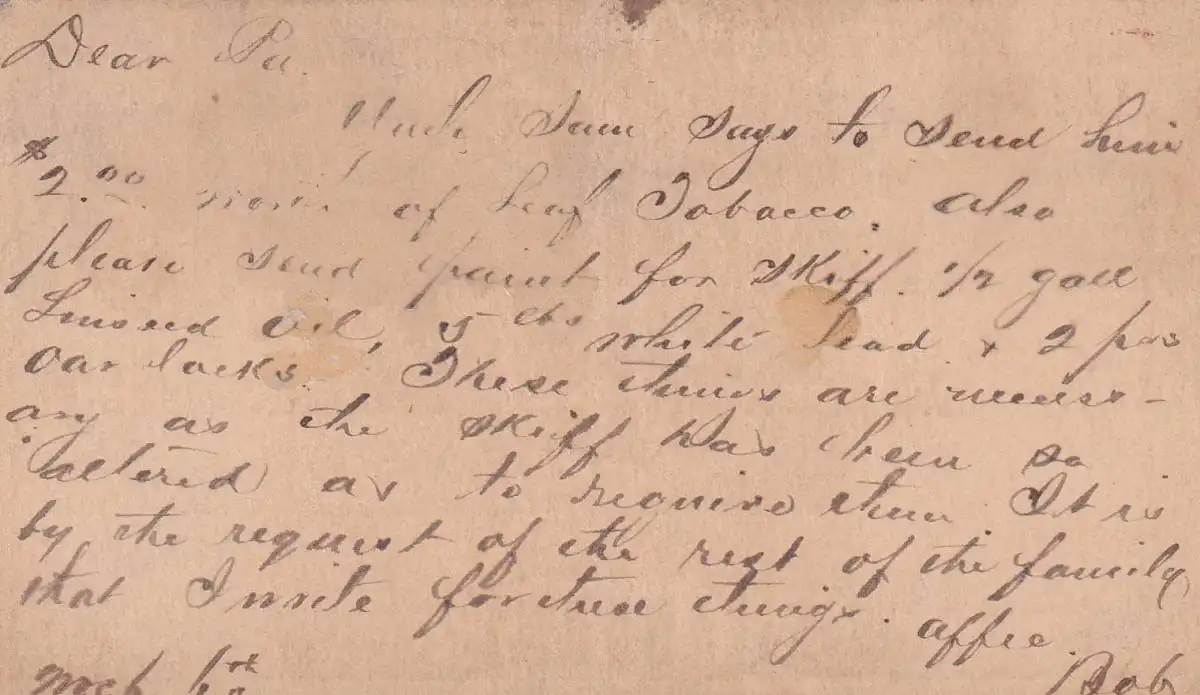 Dear Pa.
Uncle Sam says to send him
$2.00 worth of Leaf Tobacco. Also
please send paint for skiff. 1/2 gall
Linseed Oil, 5 lbs white lead & 2 prs
oar locks. These things are necess-
ary as the skiff has been so
altered as to require them. It is
by the request of the rest of the family
that I write for these things. affec.
Bob